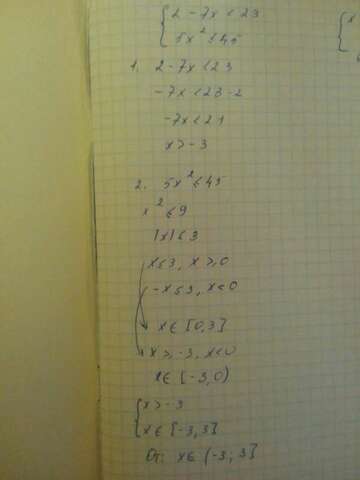 { 2 - 7x < 23
5x² ≤ 45
1. 2 - 7x < 23
-7x < 23 - 2
-7x < 21
x > -3
2. 5x² ≤ 45
x² ≤ 9
|x| ≤ 3
x ≤ 3, x ≥ 0
-x ≤ 3, x < 0
x ∈ [0,3]
x ≥ -3, x < 0
x ∈ [-3,0)
{ x > -3
x ∈ [-3,3]
От: x ∈ (-3; 3]